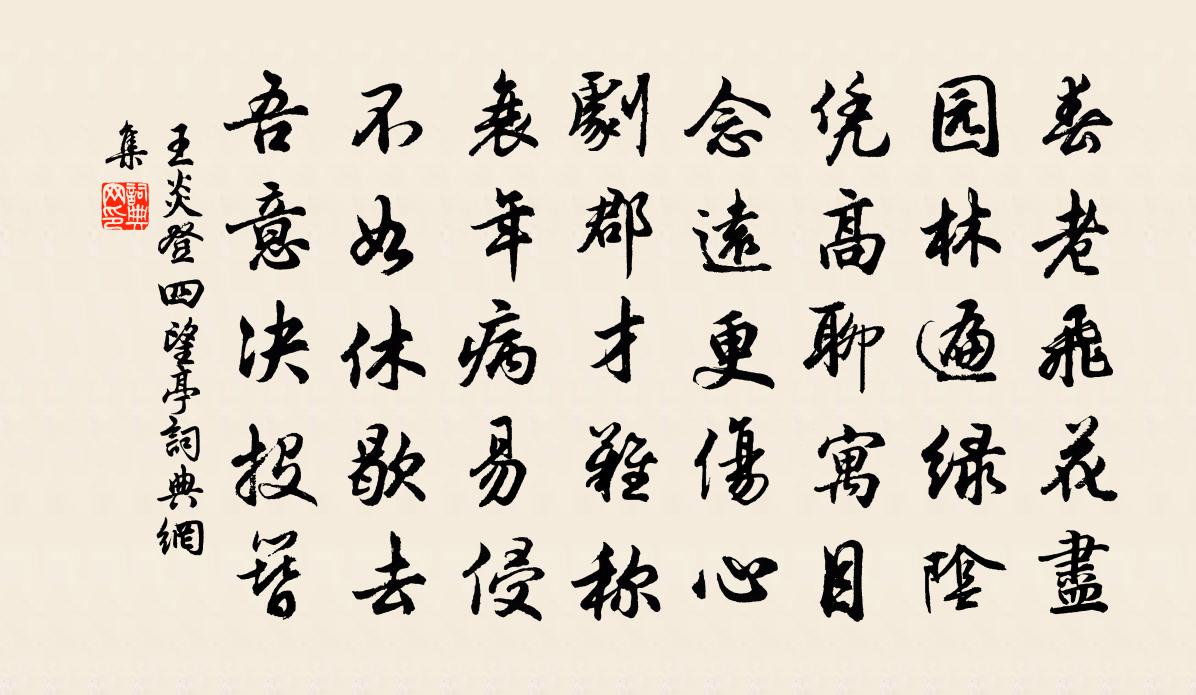 春老飛花盡
园林遍绿陰
凭高聊寓目
念遠更傷心
劇郡才難称
衰年病易侵
不如休歇去
吾意决投簪
王炎登四望亭詞典網
集
詞典网印